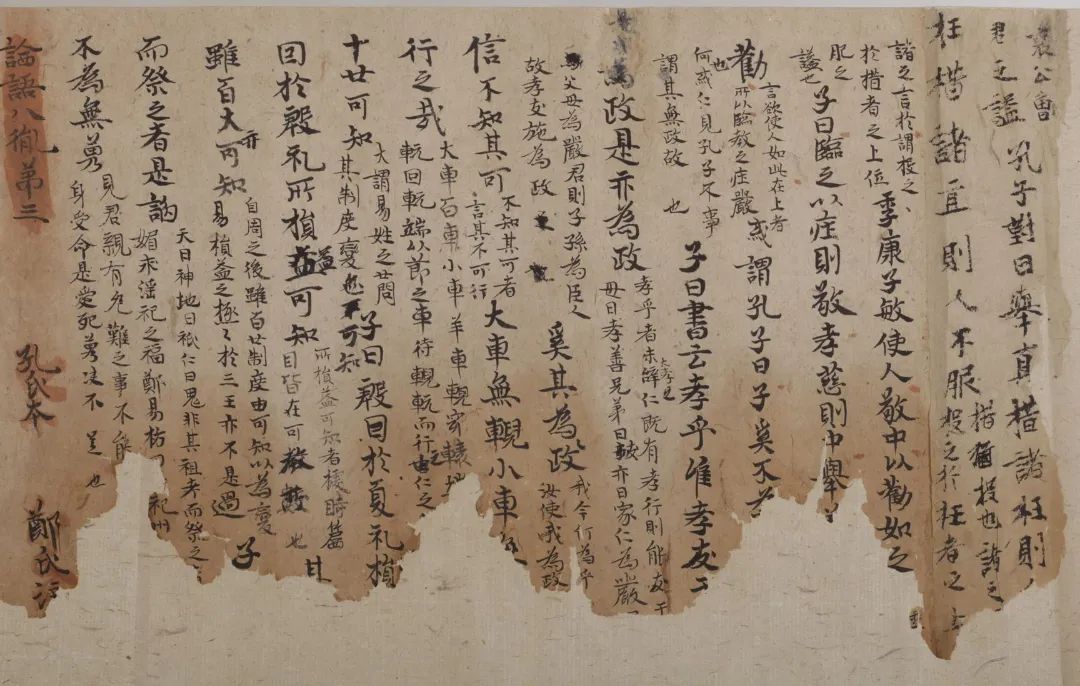 哀公魯
君之謚
孔子對曰舉直措諸枉則
枉措諸直則人不服
措猶投也諸之
投之於枉者之上
諸之言於謂投之
於措者之上位
季康子敏使人敬中以勸如之
服之
謚也
子曰臨之以症則敬孝慈則中舉
勸
言欲使人如此在上者
也所以臨教之症嚴
或謂孔子曰子奚不
何或仁見孔子不事
謂其無政故也
子曰書云孝乎惟孝友于
為政是亦為政
孝乎者 仁既有孝行則能友于
毋曰孝善兄弟曰 亦曰家仁為嚴
父母為嚴君則子孫為臣人
故孝友施為政
奚其為為政
我今行為乎
汝使我為政
信不知其可
不知其可者
言其不可行
大車無輗小車
行之哉
大車百車小車羊車輗 轅
軏 輗端以節之車待輗軏而行之 仁之
十世可知
大謂易姓之世問
其制度變 可知
子曰殷因於夏礼損
因於殷礼所損益可知
所損益可知者據時篇
目皆在可 也
雖百大亦可知
自周之後雖百世制度由可知以為變
易損益之極之於三王亦不是過
子
而祭之者是謟
天曰神地曰祇仁曰鬼非其祖考而祭之
媚求淫祀之福鄭易祊田
不為無勇
見君親有危難之事不能
身受命是愛死勇決不是也
論語八佾第三 孔氏本 鄭氏注